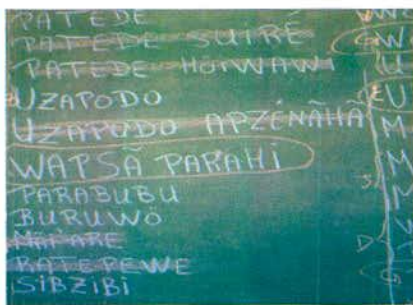 PATEDE
PATEDE SUIRÉ
PATEDE HÖIWAW
UZAPODO
UZAPODO APZÉNÃHÃ
WAPSÃ PARAHI
PARABUBU
BURUWÖ
RATEPEWE
SIBZIBI
W
U
U
M
M
M
V
D
G